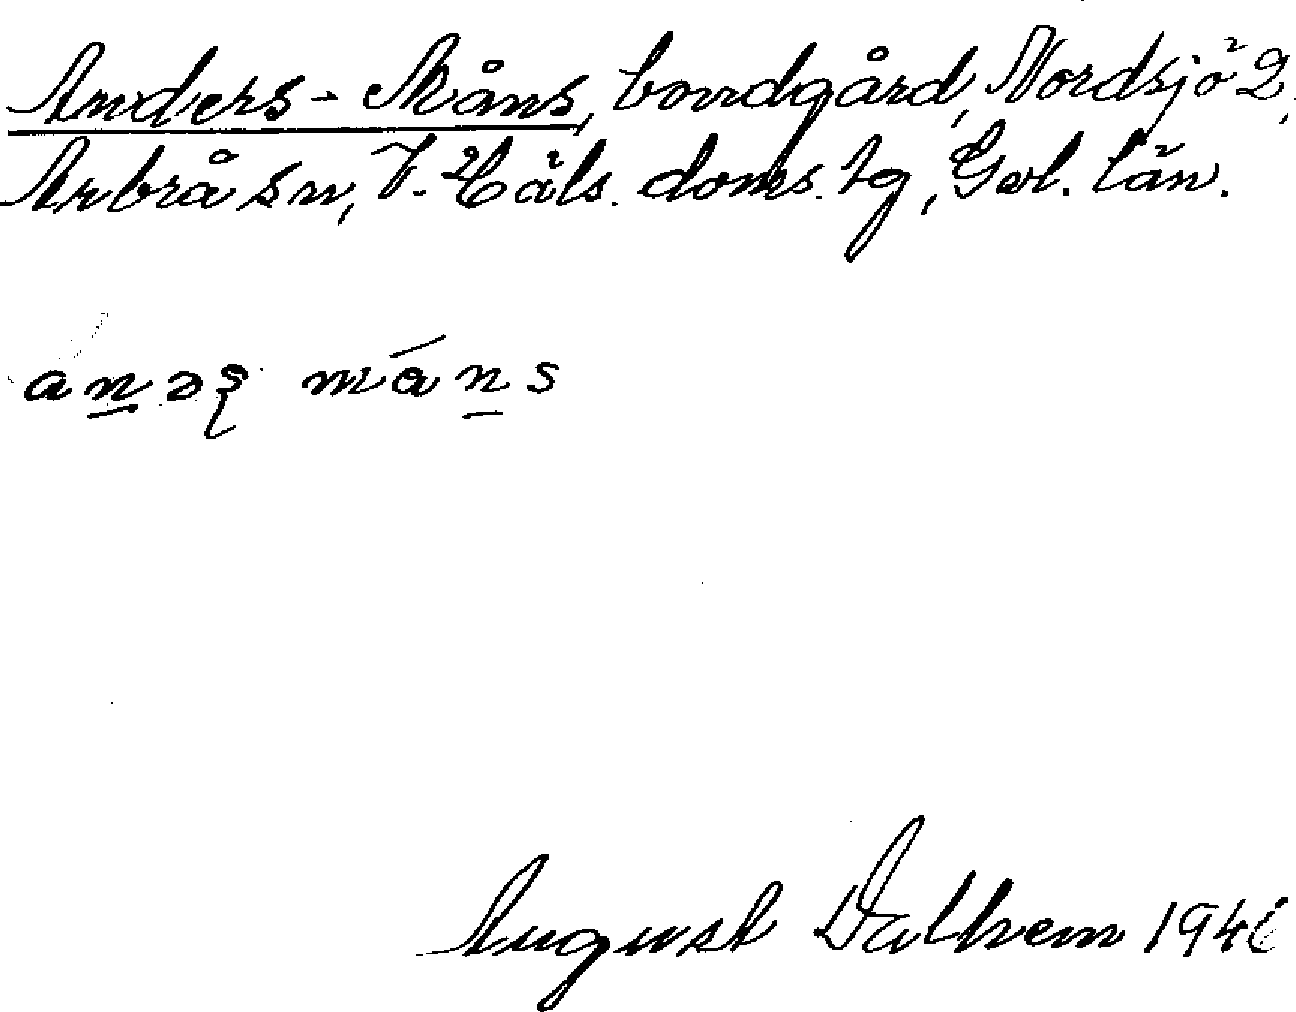 Anders-Måns, bondgård, Nordsjö 2,
Arbrå sn, V. Häls. doms. tg, Gävl. län.
anəʂ máns
August Dalhem 194